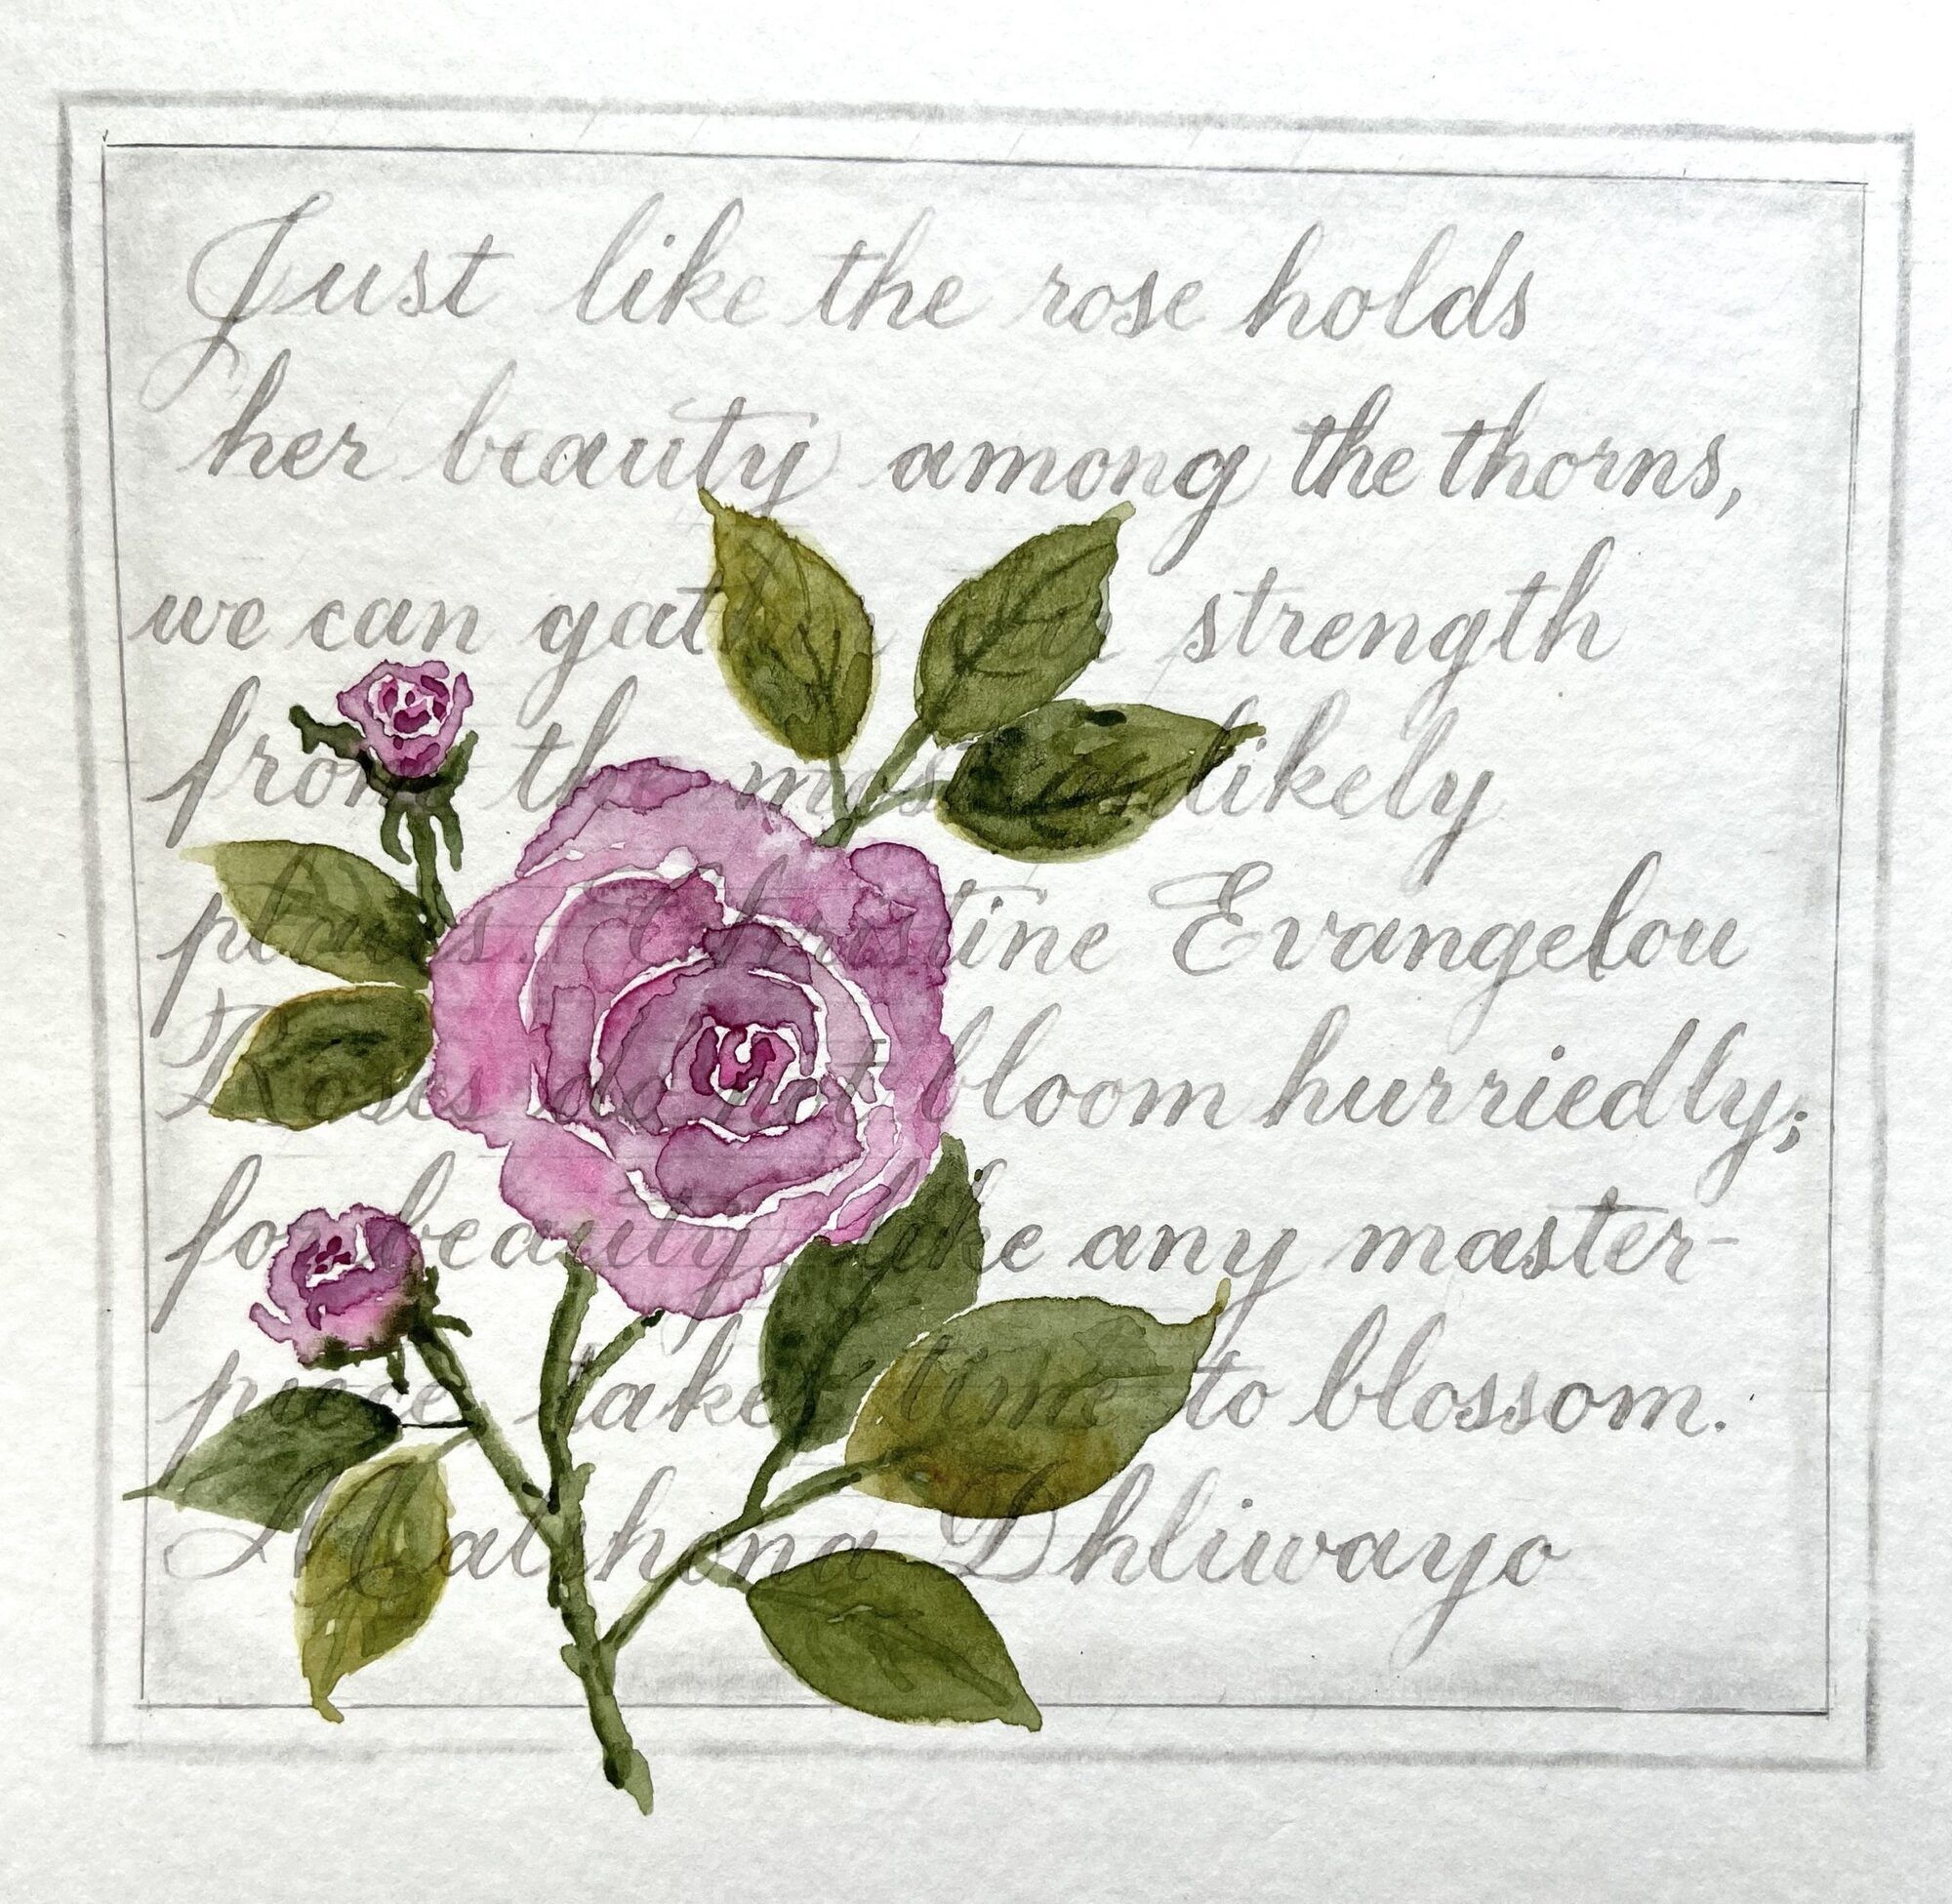 Just like the rose holds
her beauty among the thorns,
we can gather our strength
from the most unlikely
places. Christine Evangelou
Roses do not bloom hurriedly;
for beauty, like any master-
piece, takes time to blossom.
Matshona Dhliwayo